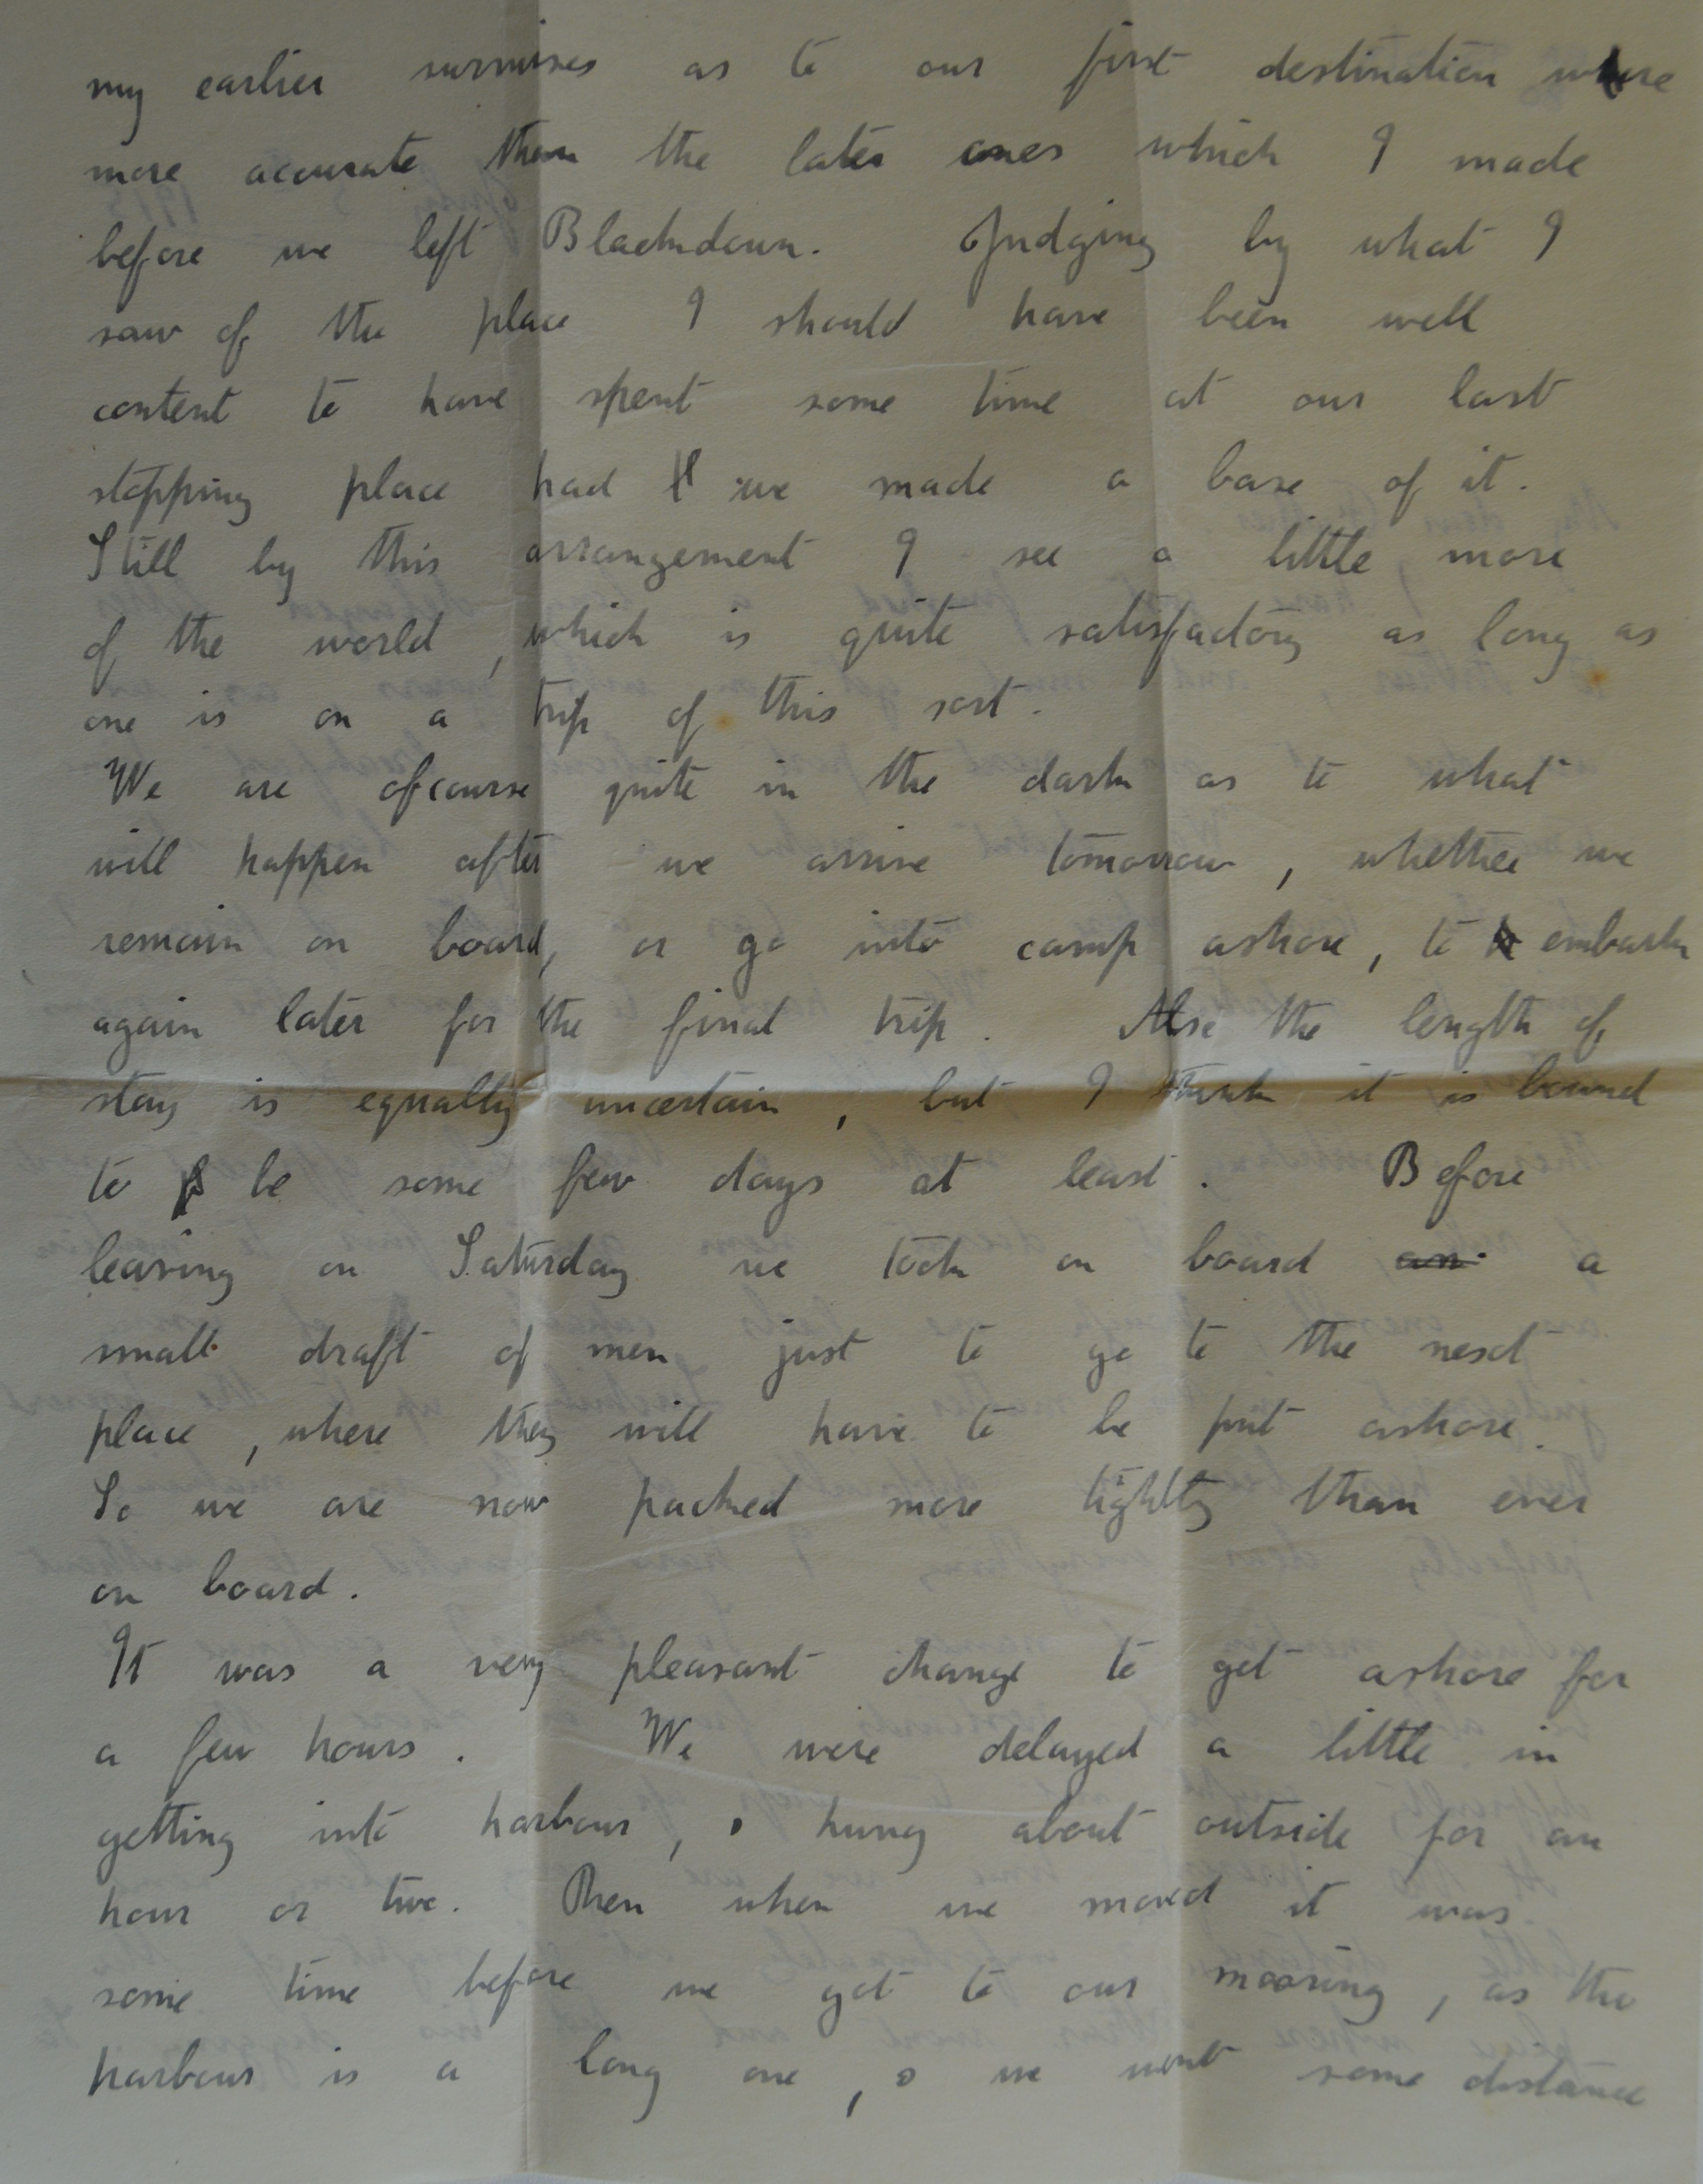 my earlier surmises as to our first destination where
more accurate than the later ones which I made
before we left Blackdown. Judging by what I
saw of the place I should have been well
content to have spent some time at our last
stopping place had we made a base of it.
Still by this arrangement I see a little more
of the world, which is quite satisfactory as long as
one is on a trip of this sort.
We are ofcourse quite in the dark as to what
will happen after we arrive tomorrow, whether we
remain on board, or go into camp ashore, to embark
again later for the final trip. Also the length of
stay is equally uncertain, but I think it is bound
to be some few days at least. Before
leaving on Saturday we took on board an a
small draft of men just to go to the next
place, where they will have to be put ashore.
So we are now packed more tightly than ever
on board.
It was a very pleasant change to get ashore for
a few hours. We were delayed a little in
getting into harbour, & hung about outside for an
hour or two. Then when we moved it was
some time before we got to our mooring, as the
harbour is a long one, & we went some distance